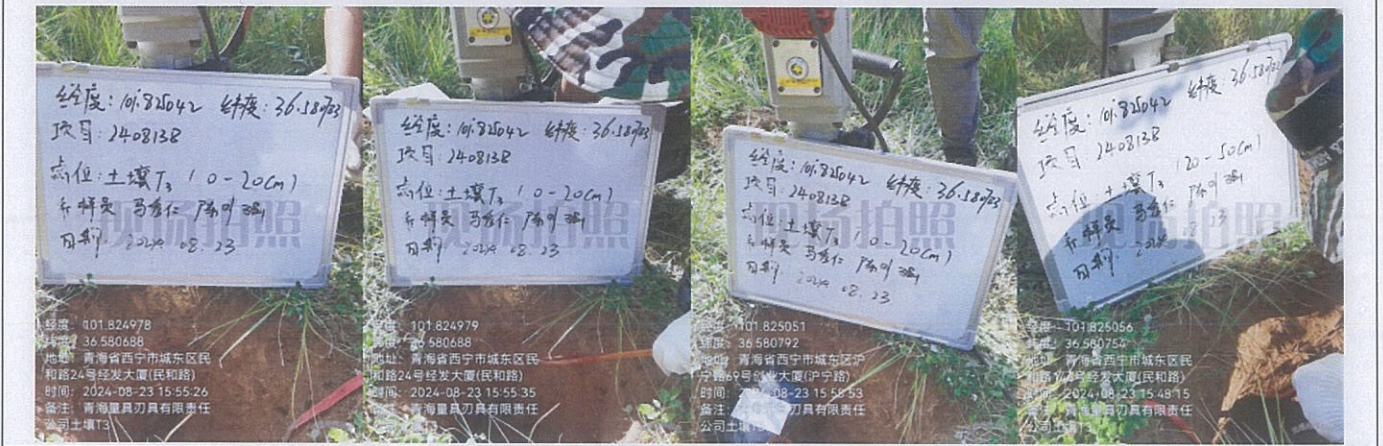 经度: 101.825042 纬度: 36.580703
项目: 2408138
点位: 土壤T3 (0-20cm)
采样员
日期: 2024.08.23
现场拍照
经度: 101.824978
纬度: 36.580688
地址: 青海省西宁市城东区民
和路24号经发大厦(民和路)
时间: 2024-08-23 15:55:26
备注: 青海量具刃具有限责任
公司土壤T3
经度: 101.825042 纬度: 36.580703
项目: 2408138
点位: 土壤T3 (0-20cm)
采样员
日期: 2024.08.23
现场拍照
经度: 101.824979
纬度: 36.580688
地址: 青海省西宁市城东区民
和路24号经发大厦(民和路)
时间: 2024-08-23 15:55:35
备注: 青海量具刃具有限责任
公司土壤T3
经度: 101.825042 纬度: 36.580703
项目: 2408138
点位: 土壤T3 (0-20cm)
采样员
日期: 2024.08.23
现场拍照
经度: 101.825051
纬度: 36.580792
地址: 青海省西宁市城东区沪
宁路69号创业大厦(沪宁路)
时间: 2024-08-23 15:58:53
备注: 青海量具刃具有限责任
公司土壤
经度: 101.825042 纬度: 36.580703
项目: 2408138
点位: 土壤T3 (20-50cm)
采样员
日期:
现场拍照
经度: 101.825056
纬度: 36.580754
地址: 青海省西宁市城东区民
号经发大厦(民和路)
时间: 2024-08-23 15:48:15
备注: 青海量具刃具有限责任
公司土壤T3